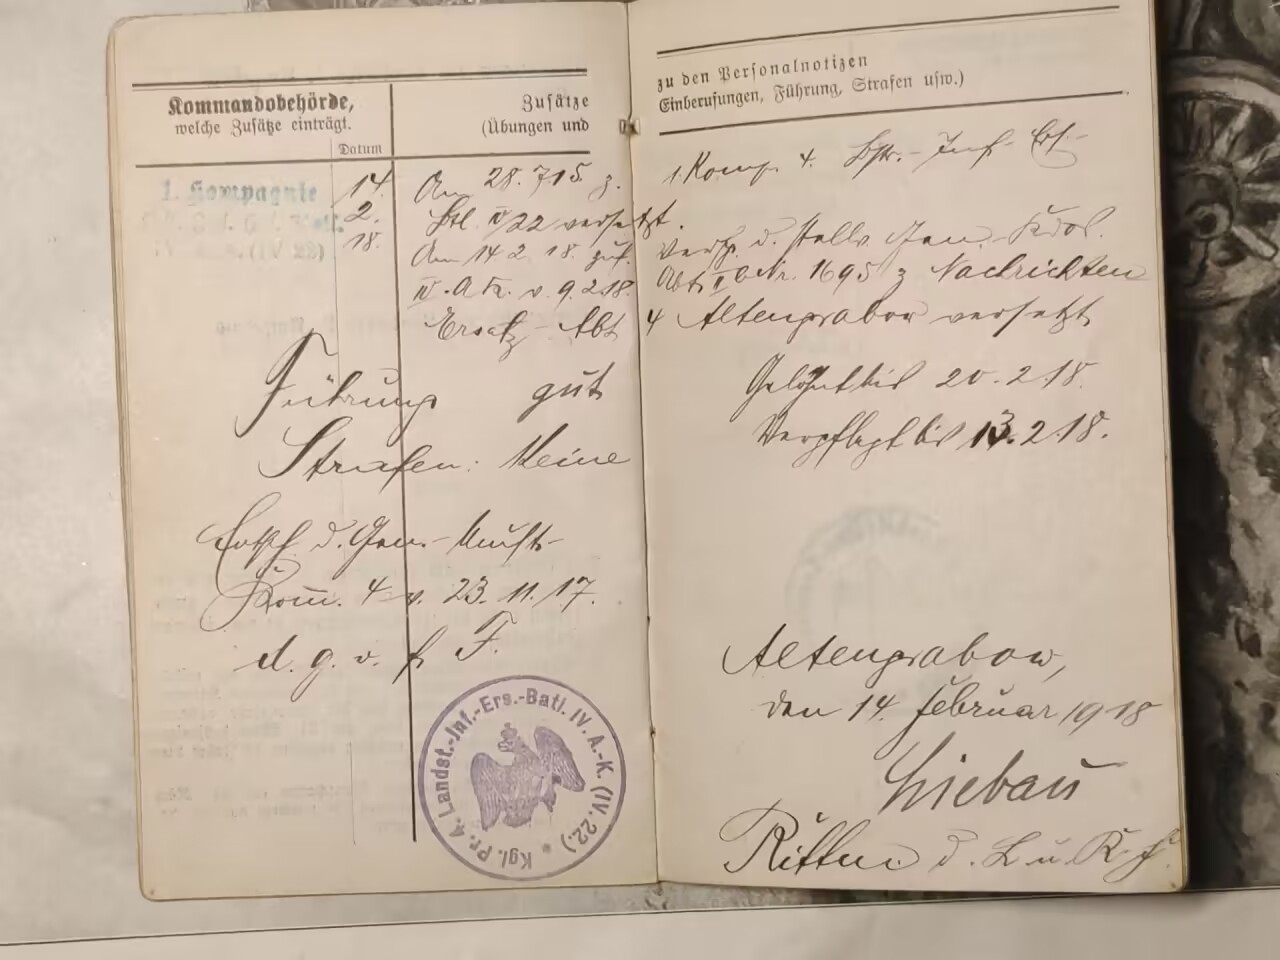 Kommandobehörde,
welche Zusätze einträgt.
Datum
Zusätze
(Übungen und
zu den Personalnotizen
Einberufungen, Führung, Strafen usw.)
1. Kompagnie
14. 2. 18.
Am 28. 7 15. z. 1. Komp. 4. Inf.- Ers.-
Btl. IV/22 versetzt.
Am 14 2. 18. gem. Verfg. d. stellv. Gen.-Kdos.
IV. A. K. v. 9.2.18. Abt. Nr. 1695 z Nachrichten
Ersatz-Abt 4 Altengrabow versetzt
Führung gut
Strafen: Keine
Gelöhnt bis 20. 2. 18.
Verpflegt bis 13. 2. 18.
d. Gen.-
Kom. 4 v. 23. 11. 17.
d. g. v. f. F.
Kgl. Pr. 4. Landst.-Inf.-Ers.-Batl. IV. A.-K. (IV. 22.)
Altengrabow,
den 14. Februar 1918
Liebau
Rittm. d. L u. K. F.